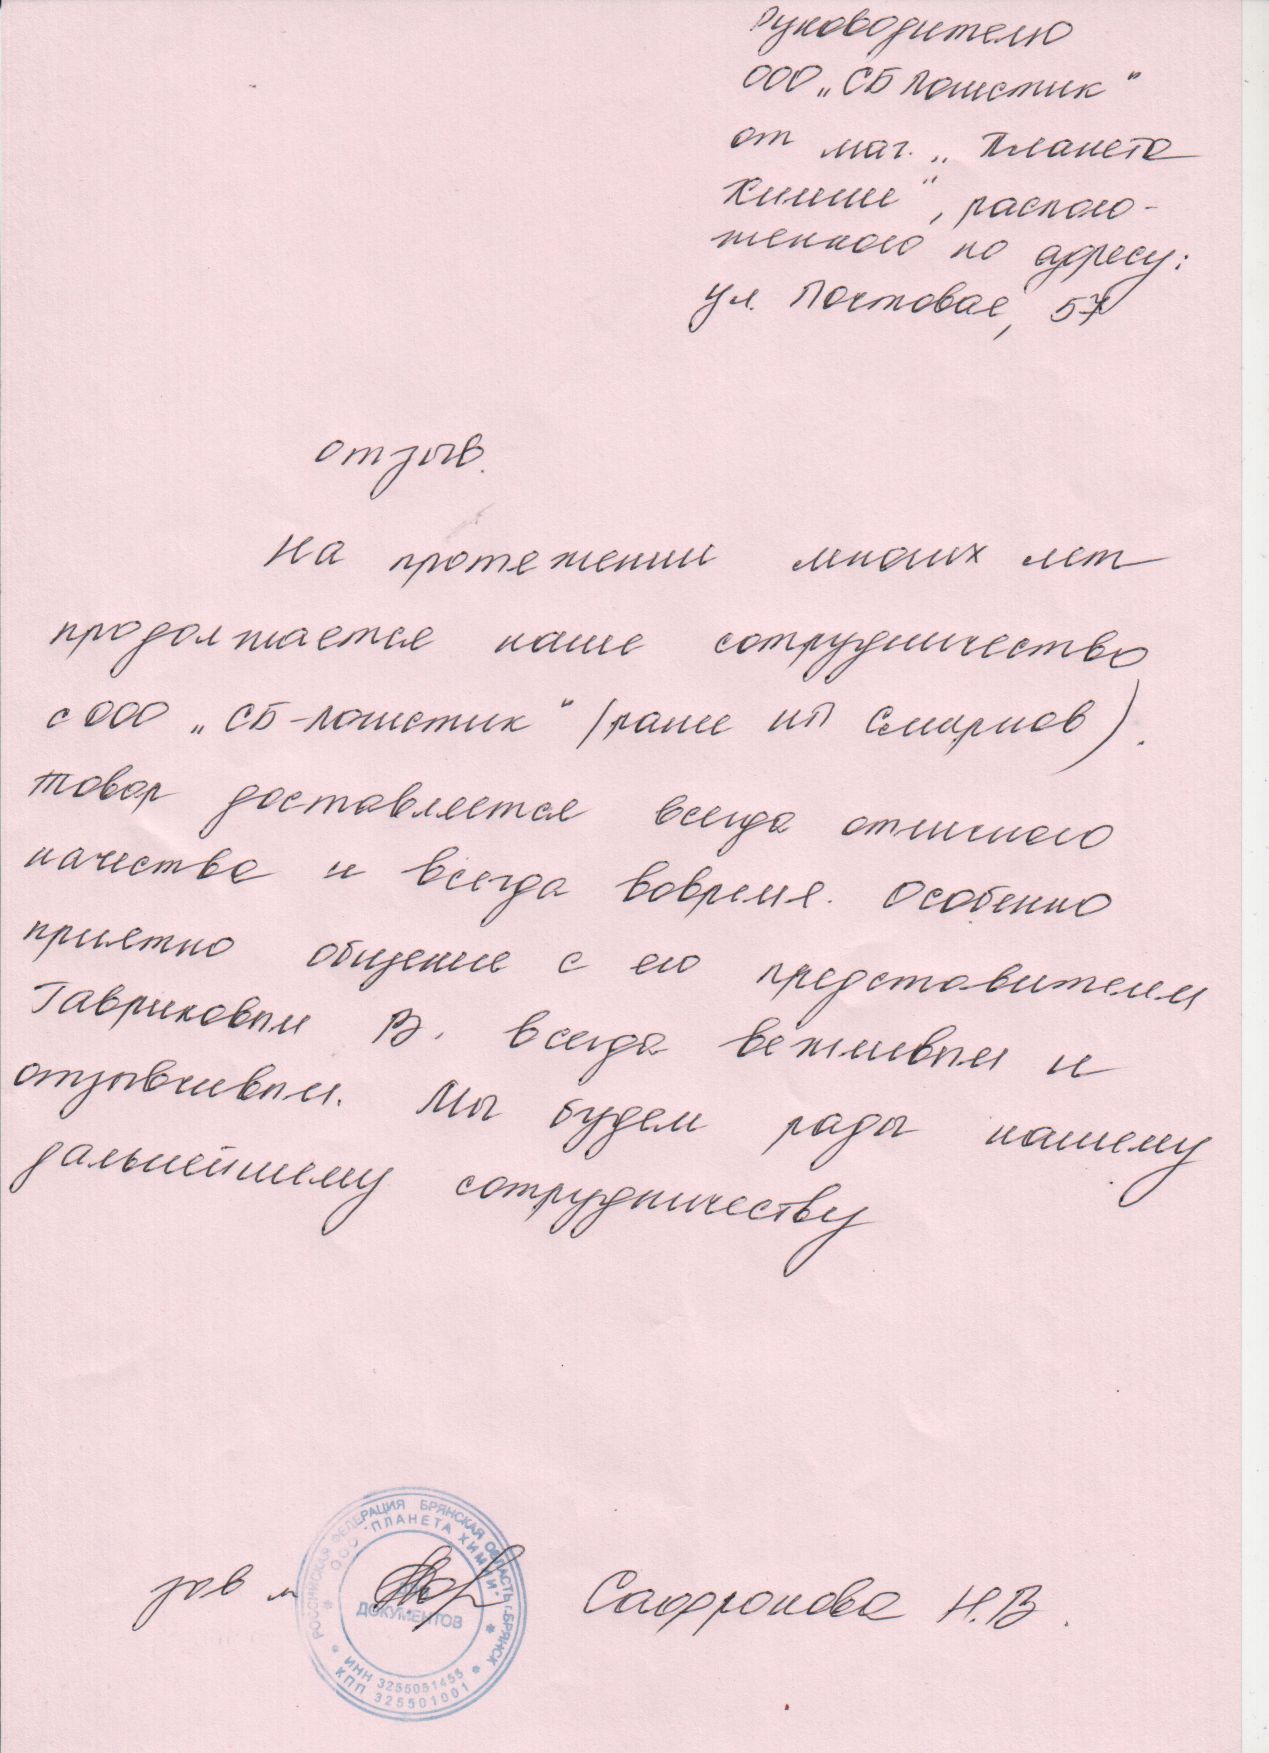 Руководителю
ООО „СБ Логистик"
от маг. „Планета
Химии", располо-
женного по адресу:
ул. Почтовая, 57
отзыв.
На протяжении многих лет
продолжается наше сотрудничество
с ООО „СБ-Логистик" /ранее ИП Смирнов).
Товар доставляется всегда отличного
качества и всегда вовремя. Особенно
приятно общение с его представителем
Гавриковым В. всегда вежливым и
отзывчивым. Мы будем рады нашему
дальнейшему сотрудничеству
РОССИЙСКАЯ ФЕДЕРАЦИЯ БРЯНСКАЯ ОБЛАСТЬ г.БРЯНСК
ООО "ПЛАНЕТА ХИМИИ"
ДОКУМЕНТОВ
ИНН 3255051455
КПП 325501001
зав м Сафронова Н.В.